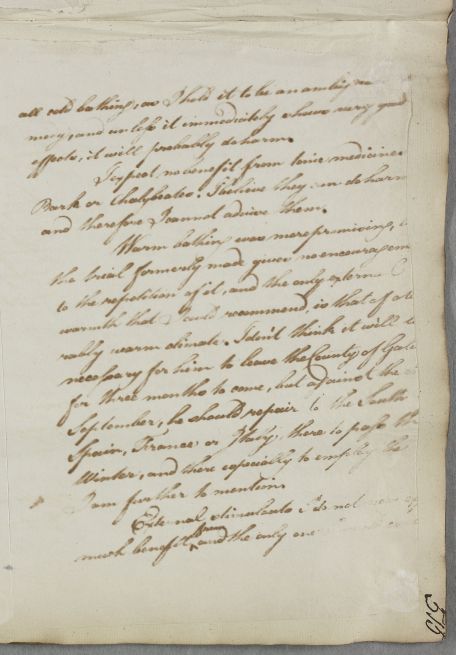 all cold bathing, as I hold it to be an ambig
medy, and unless it immediately shows very good
effects, it will probably do harm.
I expect no benefit from tonic medicines
Bark or Chalybeates. I believe they can do harm
and therefore I cannot advise them.
Warm bathing was more promising,
the trial formerly made gives no encouragem
to the repetition of it, and the only external
warmth that I could recommend, is that of a to
rably warm climate. I don't think it will be
necessary for him to leave the County of
for three months to come, but against the
September, he should repair to the South
Spain, France or Italy, there to pass the
Winter, and there especially to employ the
I am further to mention.
External stimulants I do not
much benefit from and the only one
515